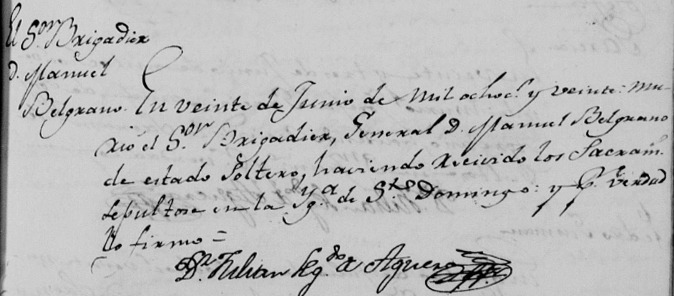 El S.or Brigadier
d. Manuel
Belgrano
En veinte de Junio de mil ochoc.s y veinte: mu-
rio el S.or Brigadier, General d. Manuel Belgrano
de estado soltero, haviendo recivido los Sacram.
sepultose en la Yg.a de S.to Domingo: y p. verdad
lo firmo =
D.r Julian Seg.do de Aguero